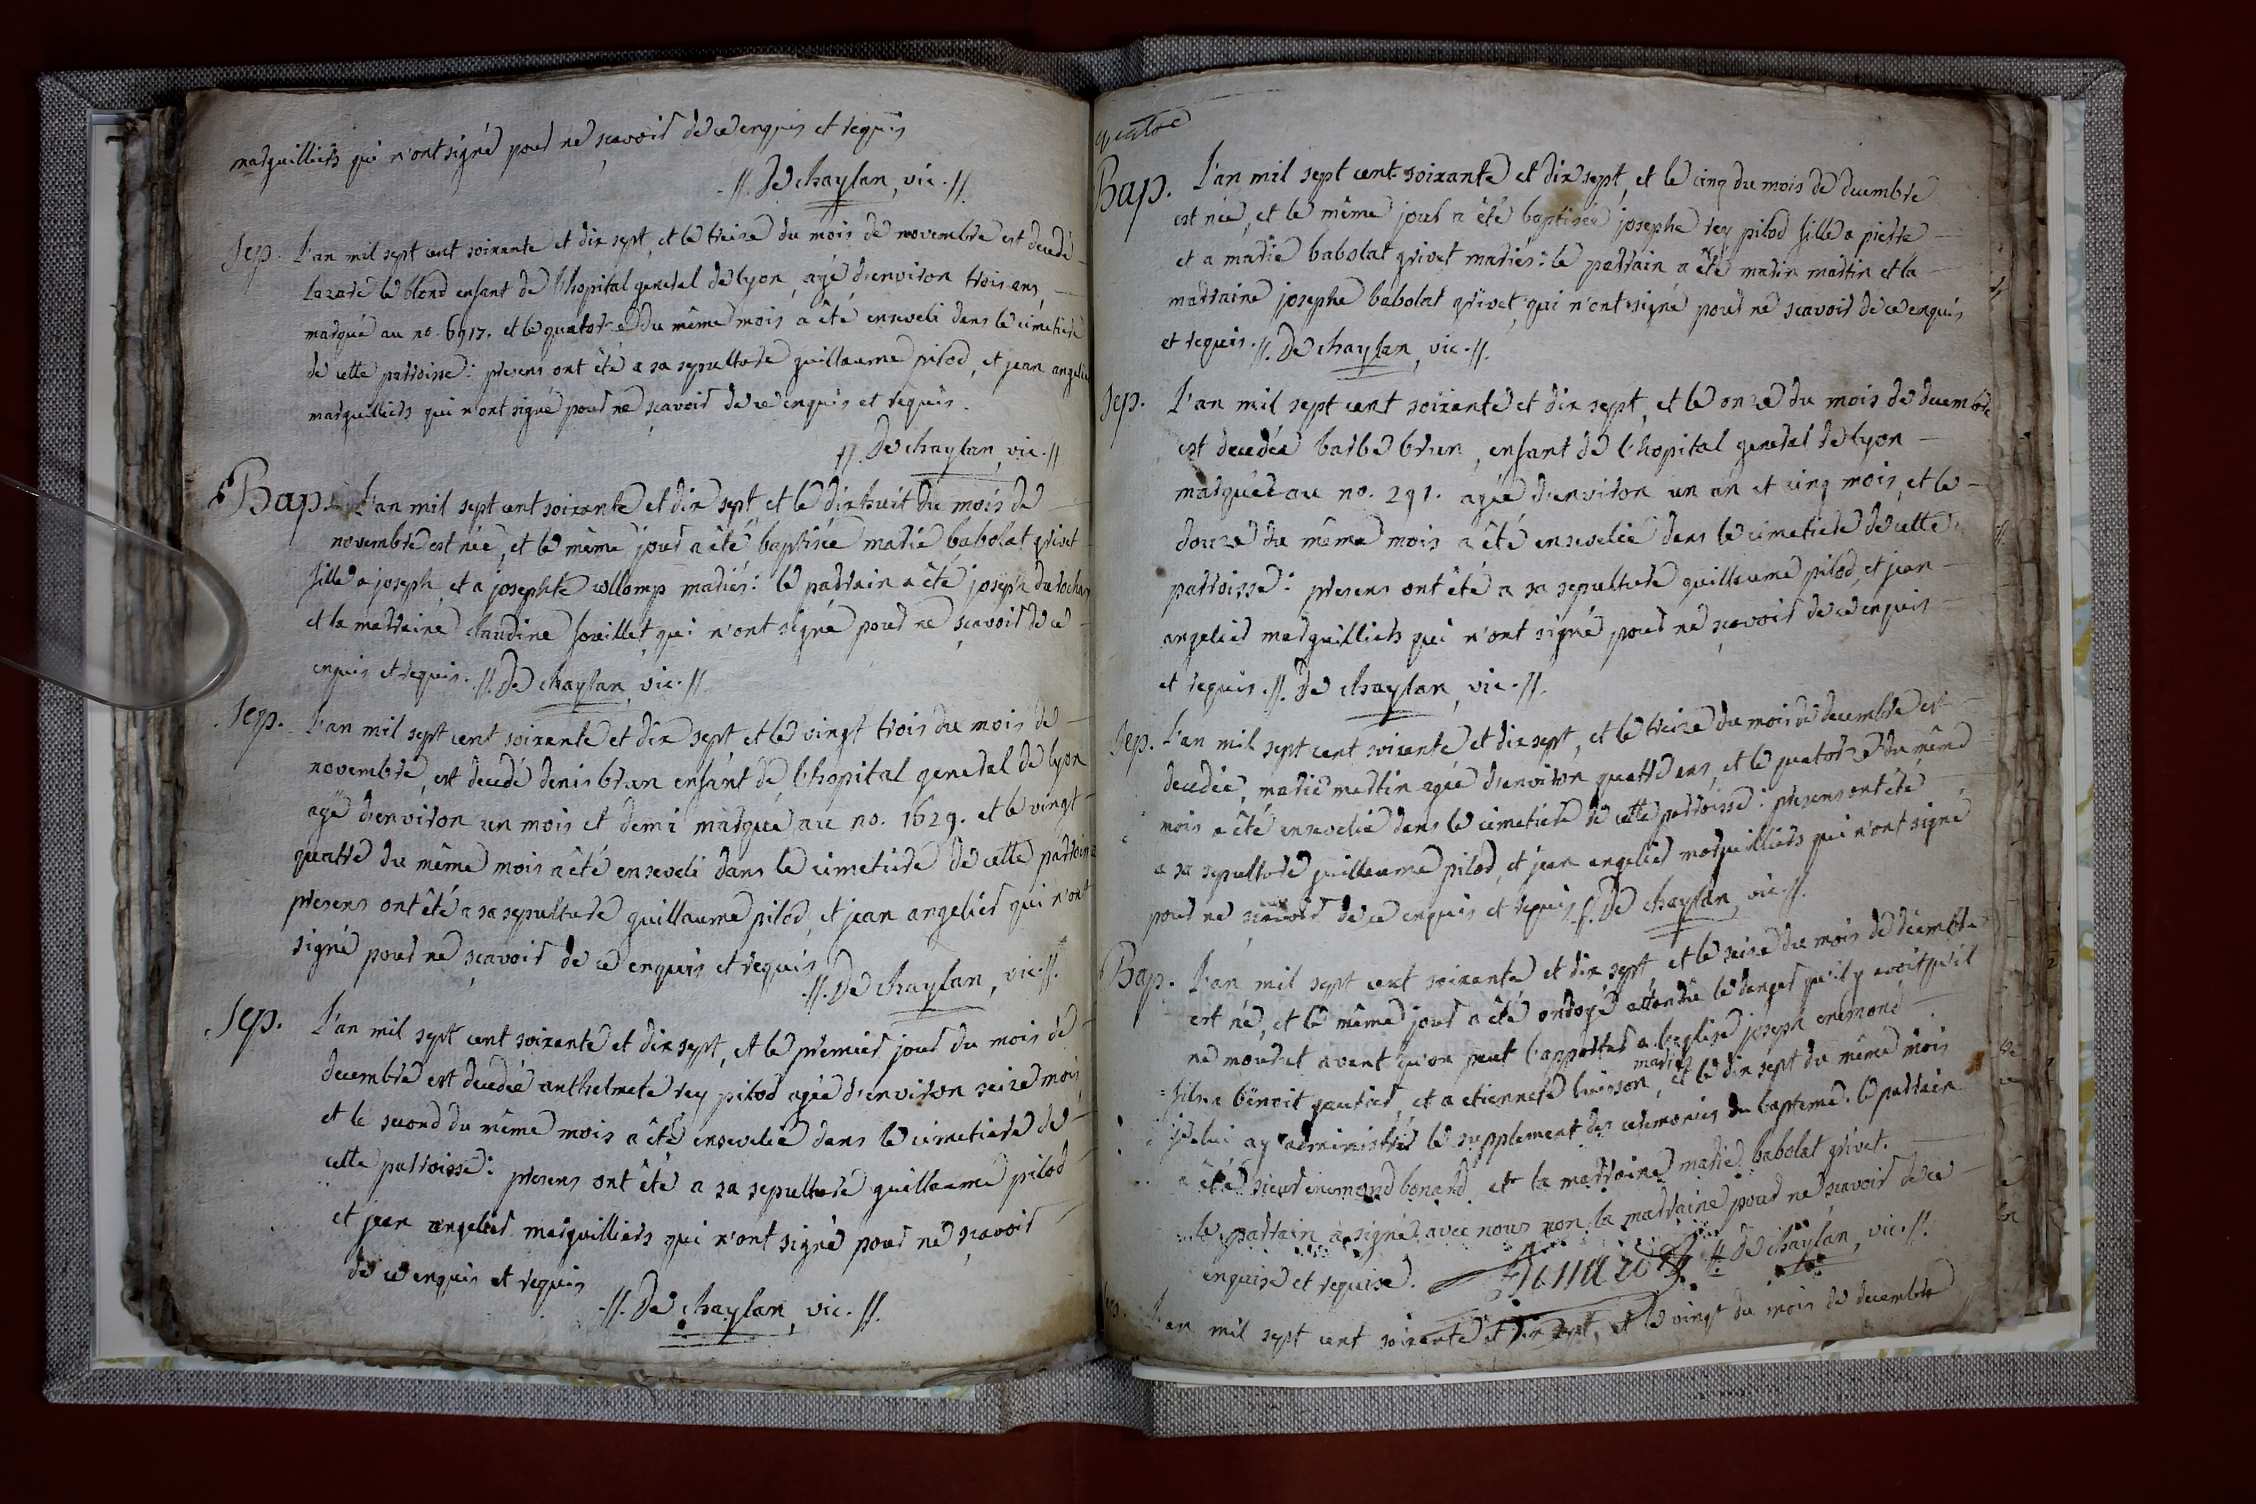 marguilliers qui n'ont signé pour ne sçavoir de ce enquis et requis
.//. De chaylan, vic. //.
Sep. L'an mil sept cent soixante et dix sept, et le treize du mois de novembre est decedé
Lazare le blond enfant de l'hopital general de lyon, agé d'environ trois ans,
marqué au no. 6917. et le quatorze du même mois a été enseveli dans le cimetiere
de cette parroisse: presens ont été a sa sepulture guillaume pilod, et jean angelier
marguilliers qui n'ont signé pour ne sçavoir de ce enquis et requis.
//. De chaylan, vic. //
Bap. L'an mil sept cent soixante et dix sept et le dixhuit du mois de
novembre est née, et le même jour a été baptisée marie babolat grivet
fille a joseph, et a josephte collomp mariés: le parrain a été joseph durochar
et la marraine claudine souillet, qui n'ont signé pour ne sçavoir de ce
enquis et requis. //. De chaylan, vic. //
Sep. L'an mil sept cent soixante et dix sept, et le vingt trois du mois de
novembre, est decedé denis brun enfant de l'hopital general de lyon
agé d'environ un mois et demi marqué au no. 1629. et le vingt
quatre du même mois a été enseveli dans le cimetiere de cette parroisse
presens ont été a sa sepulture guillaume pilod, et jean angelier qui n'ont
signé pour ne sçavoir de ce enquis et requis
.//. De chaylan, vic. //.
Sep. L'an mil sept cent soixante et dix sept, et le premier jour du mois de
decembre est decedée anthelmete rey pilod agée d'environ seize mois,
et le second du même mois a été ensevelie dans le cimetiere de
cette parroisse: presens ont été a sa sepulture guillaume pilod
et jean angelier marguilliers qui n'ont signé pour ne sçavoir
de ce enquis et requis
.//. De chaylan, vic. //.
quatre
Bap. L'an mil sept cent soixante et dix sept, et le cinq du mois de decembre
est née, et le même jour a été baptisée josephe rey pilod fille a pierre
et a marie babolat grivet mariés: le parrain a été marin martin et la
marraine josephe babolat grivet, qui n'ont signé pour ne scavoir de ce enquis
et requis. //. De chaylan, vic. //.
Sep. L'an mil sept cent soixante et dix sept, et le onze du mois de decembre
est decedée barbe brun, enfant de l'hopital general de lyon
marquée au no. 291. agée d'environ un an et cinq mois, et le
douze du même mois a été ensevelie dans le cimetiere de cette
parroisse: presens ont été a sa sepulture guillaume pilod, et jean
angelier marguilliers qui n'ont signé pour ne sçavoir de ce enquis
et requis. //. De chaylan, vic. //.
Sep. L'an mil sept cent soixante et dix sept, et le treize du mois de decembre est
decedée, marie martin agée d'environ quatre ans, et le quatorze du même
mois a été ensevelie dans le cimetiere de cette parroisse: presens ont été
a sa sepulture guillaume pilod, et jean angelier marguilliers qui n'ont signé
pour ne scavoir de ce enquis et requis. //. De chaylan, vic. //.
Bap. L'an mil sept cent soixante et dix sept, et le seize du mois de décembre
est né, et le même jour a été ondoyé attendu le danger qu'il y avoit qu'il
ne mourut avant qu'on peut l'apporter a l'eglise joseph enemond
fils a benoit gautier, et a etiennete buisson, mariés et le dix sept du même mois
je lui ay administré le supplement des ceremonies du bapteme. le parrain
a été sieur enemond bonard et la marraine marie babolat grivet.
le parrain a signé avec nous non la marraine pour ne sçavoir de ce
enquise et requise. Bonnard //. De chaylan, vic. //.
L'an mil sept cent soixante et dix sept, et le vingt du mois de decembre